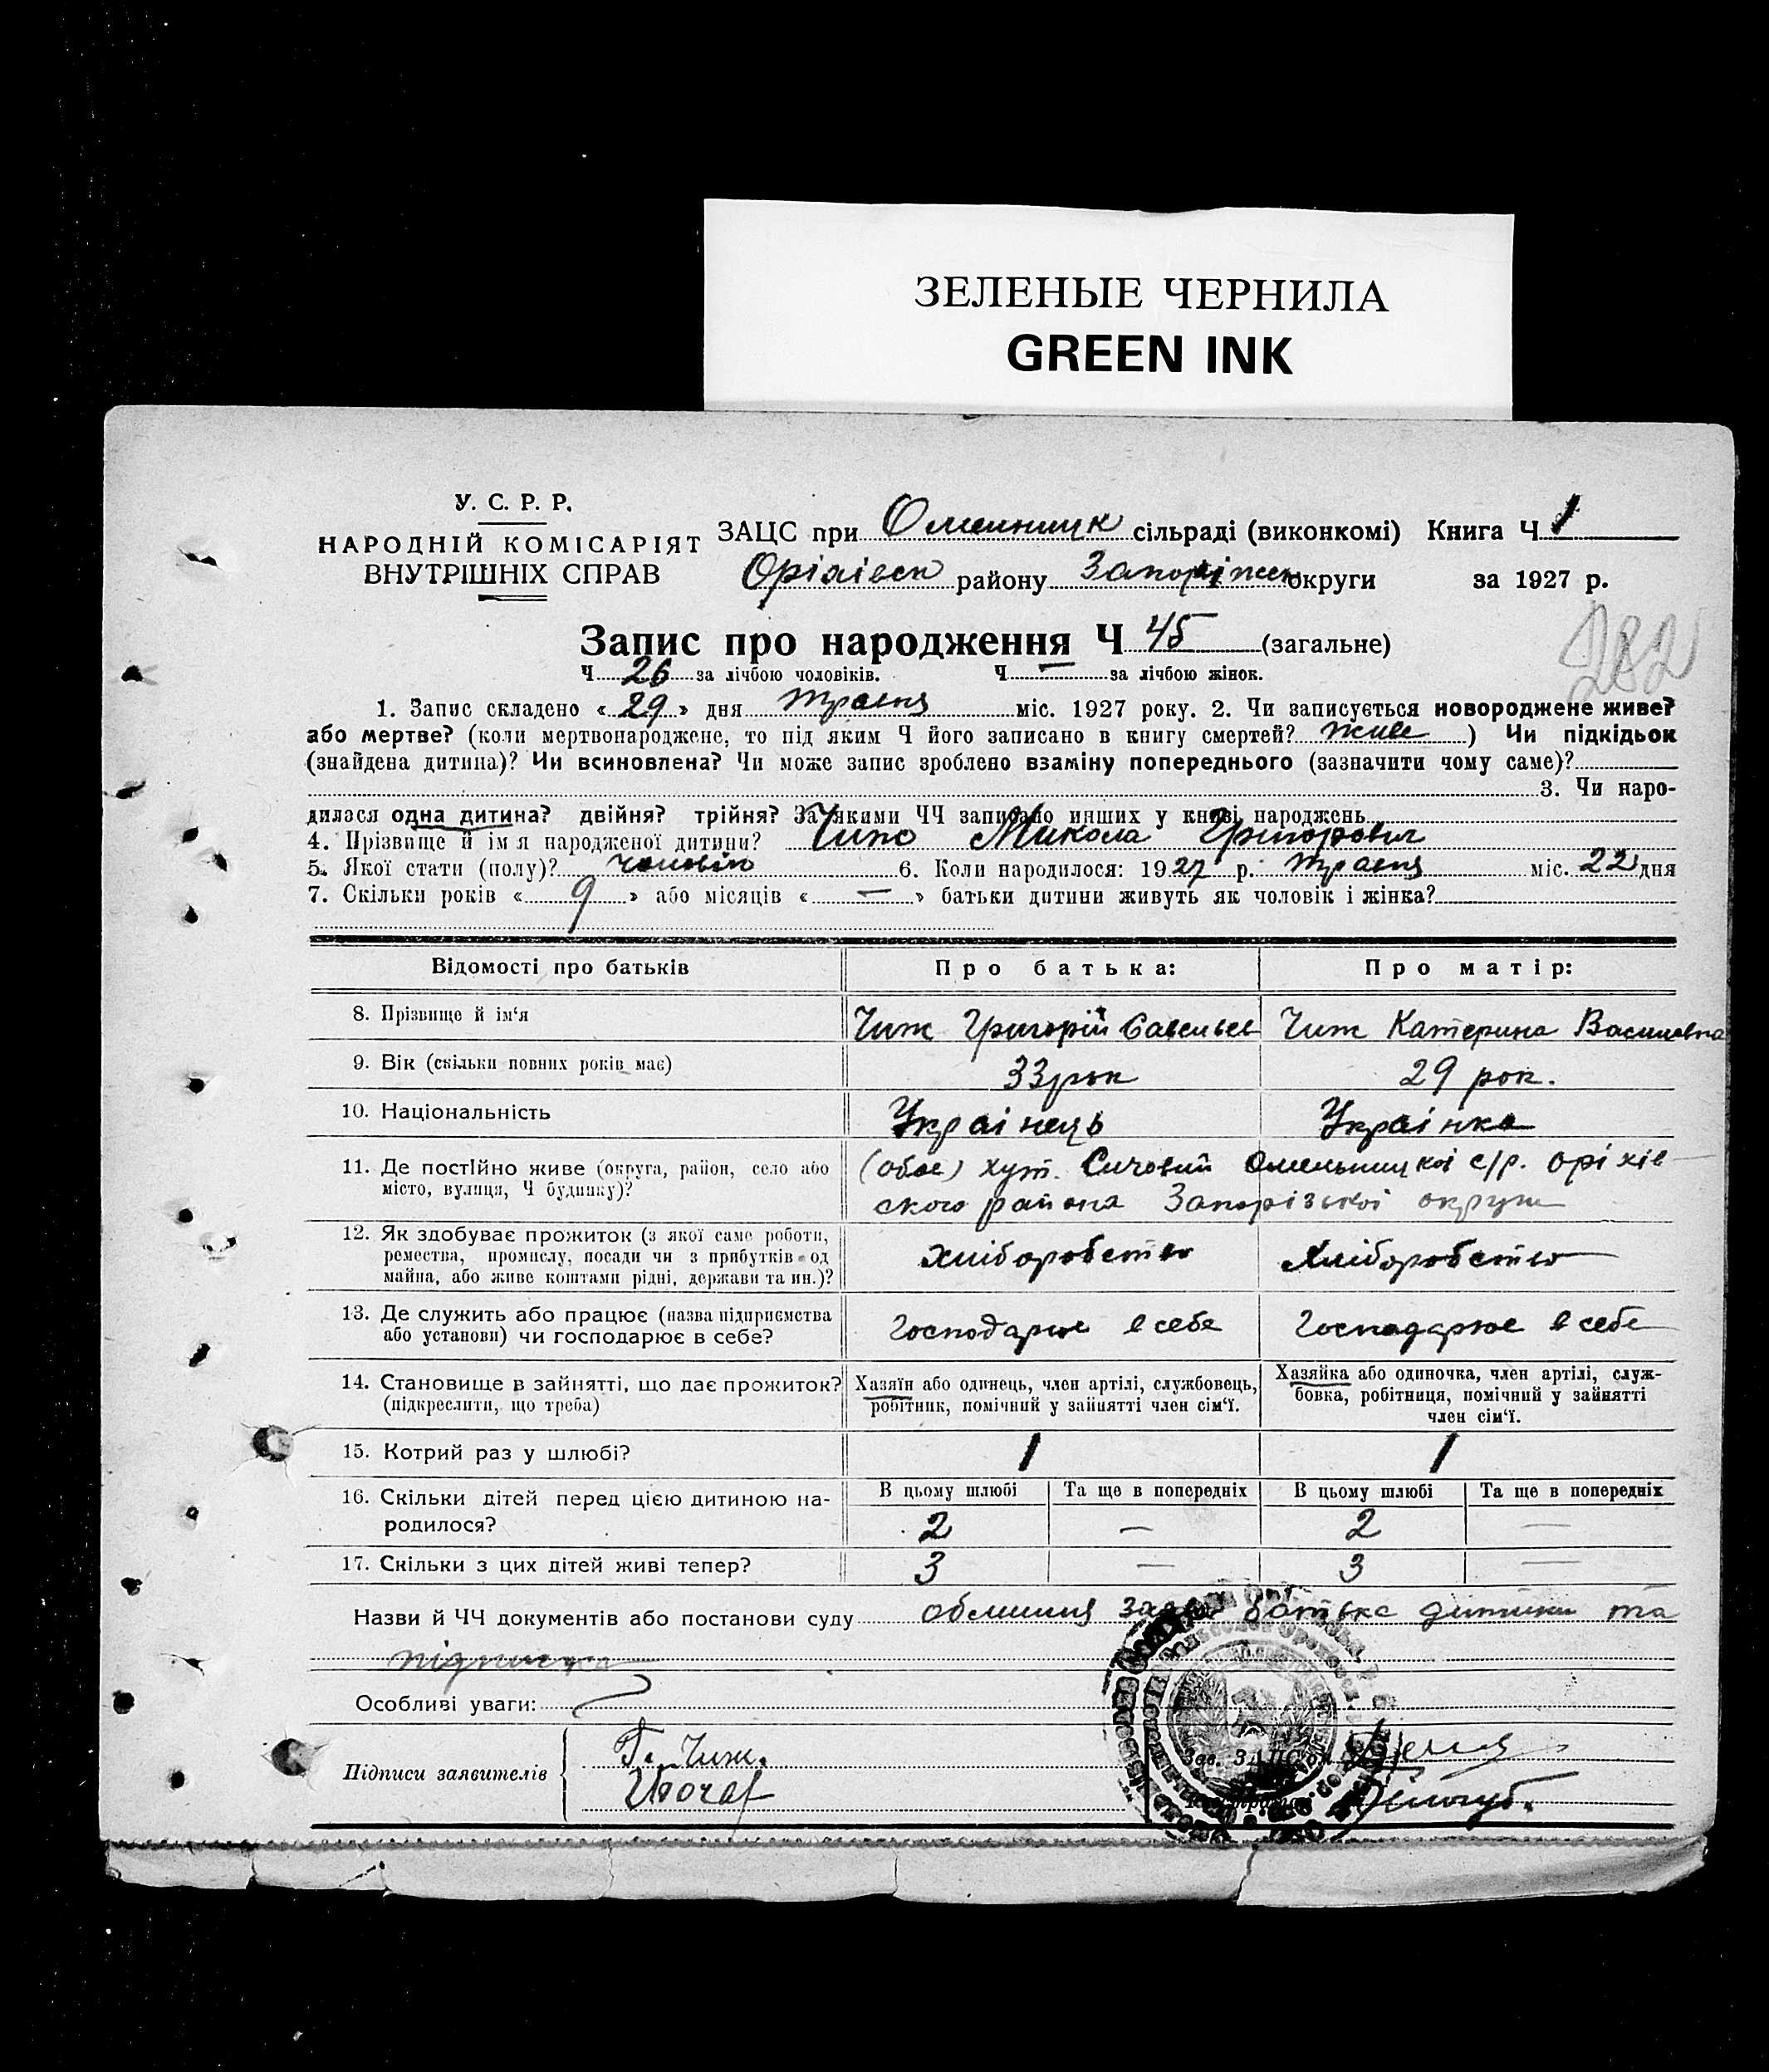 ЗЕЛЕНЫЕ ЧЕРНИЛА
GREEN INK
У. С. Р. Р.
НАРОДНІЙ КОМІСАРІЯТ
ВНУТРІШНІХ СПРАВ
ЗАЦС при Омельницк сільраді (виконкомі) Книга Ч 1
Оріхівськ району Запоріжськ округи за 1927 р.
Запис про народження Ч 45 (загальне)
Ч 26 за лічбою чоловіків. Ч — за лічбою жінок.
282
1. Запис складено « 29 » дня травня міс. 1927 року. 2. Чи записується новороджене живе?
або мертве? (коли мертвонароджене, то під яким Ч його записано в книгу смертей? живе ) Чи підкідьок
(знайдена дитина)? Чи всиновлена? Чи може запис зроблено взаміну попереднього (зазначити чому саме)?
3. Чи наро-
дилася одна дитина? двійня? трійня? За якими ЧЧ записано инших у книзі народжень
4. Прізвище й ім'я народженої дитини? Чиж Микола Григорович
5. Якої стати (полу)? чоловік 6. Коли народилося: 1927 р. травня міс. 22 дня
7. Скільки років « 9 » або місяців « — » батьки дитини живуть як чоловік і жінка?
Відомості про батьків Про батька: Про матір:
8. Прізвище й ім'я Чиж Григорій Савельев Чиж Катерина Василевна
9. Вік (скільки повних років має) 33 рок 29 рок.
10. Національність Украінець Украінка
11. Де постійно живе (округа, район, село або місто, вулиця, Ч будинку)? (обое) хут. Сичовий Омельницкоі с/р. оріхів-
ского района Запорізькоі округи
12. Як здобуває прожиток (з якої саме роботи, ремества, промислу, посади чи з прибутків од майна, або живе коштами рідні, держави та ин.)? Хліборобство Хліборобство
13. Де служить або працює (назва підприємства або установи) чи господарює в себе? Господарює в себе Господарює в себе
14. Становище в зайнятті, що дає прожиток? (підкреслити, що треба) Хазяїн або одинець, член артілі, службовець, робітник, помічний у зайнятті член сім'ї. Хазяйка або одиночка, член артілі, служ-
бовка, робітниця, помічний у зайнятті
член сім'ї.
15. Котрий раз у шлюбі? 1 1
16. Скільки дітей перед цією дитиною на-
родилося? В цьому шлюбі Та ще в попередніх В цьому шлюбі Та ще в попередніх
2 — 2 —
17. Скільки з цих дітей живі тепер? 3 — 3 —
Назви й ЧЧ документів або постанови суду батька дитини та
підписка
Особливі уваги:
Підписи заявителів Г. Чиж.
Зав. ЗАЦС'ом